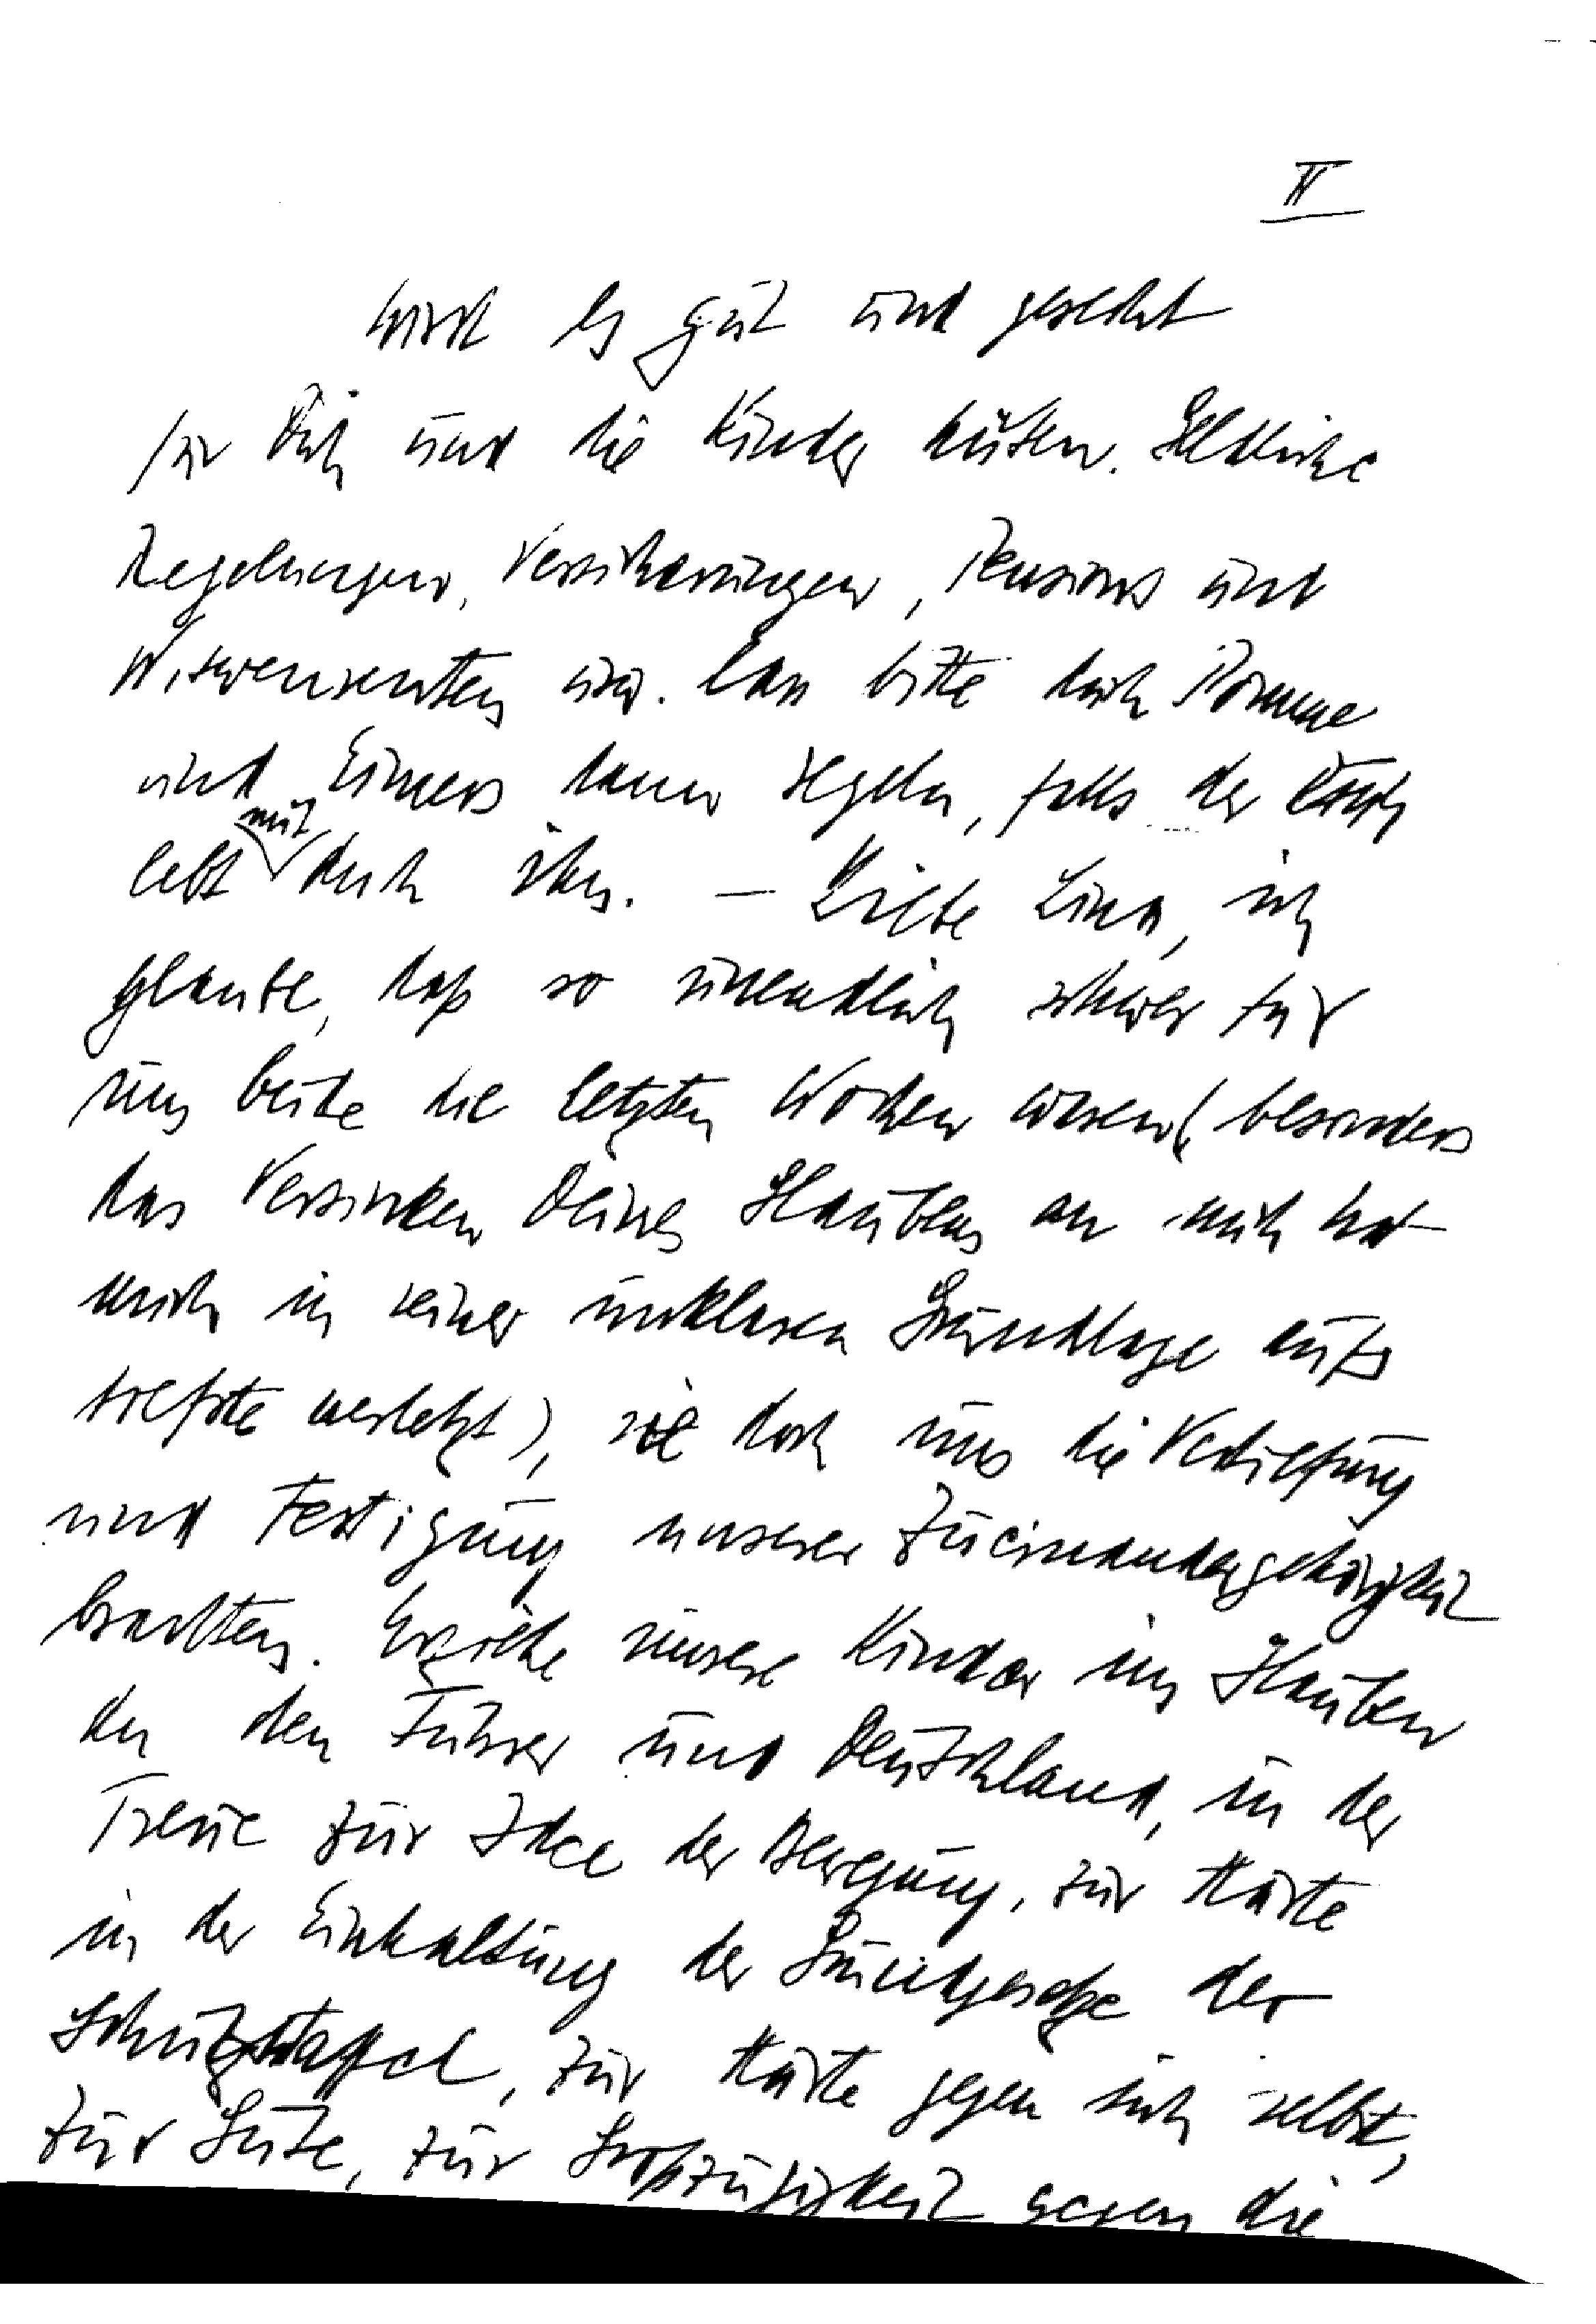 II
wirst es gut und gerecht
für Dich und die Kinder hüten. Geldliche
Regelungen, Versicherungen, Pensions und
Witwenrenten usw. lass bitte durch Pomme
und Eimers dann regeln, falls der
lebt mit durch ihn. – Liebe Lina, ich
glaube, daß so unendlich schwer für
uns beide die letzten Wochen waren (besonders
das Versinken Deines Glaubens an mich hat
mich in seiner unklaren Grundlage aufs
tiefste verletzt), sie doch uns die Vertiefung
und Festigung unserer Zueinandergehörigkeit
brachten. Erziehe unsere Kinder im Glauben
an den Führer und Deutschland, in der
Treue zur Idee der Bewegung, zur Härte
in der Einhaltung der Grundgesetze der
Schutzstaffel, zur Härte gegen sich selbst,
zur Güte, zur Großzügigkeit gegen die